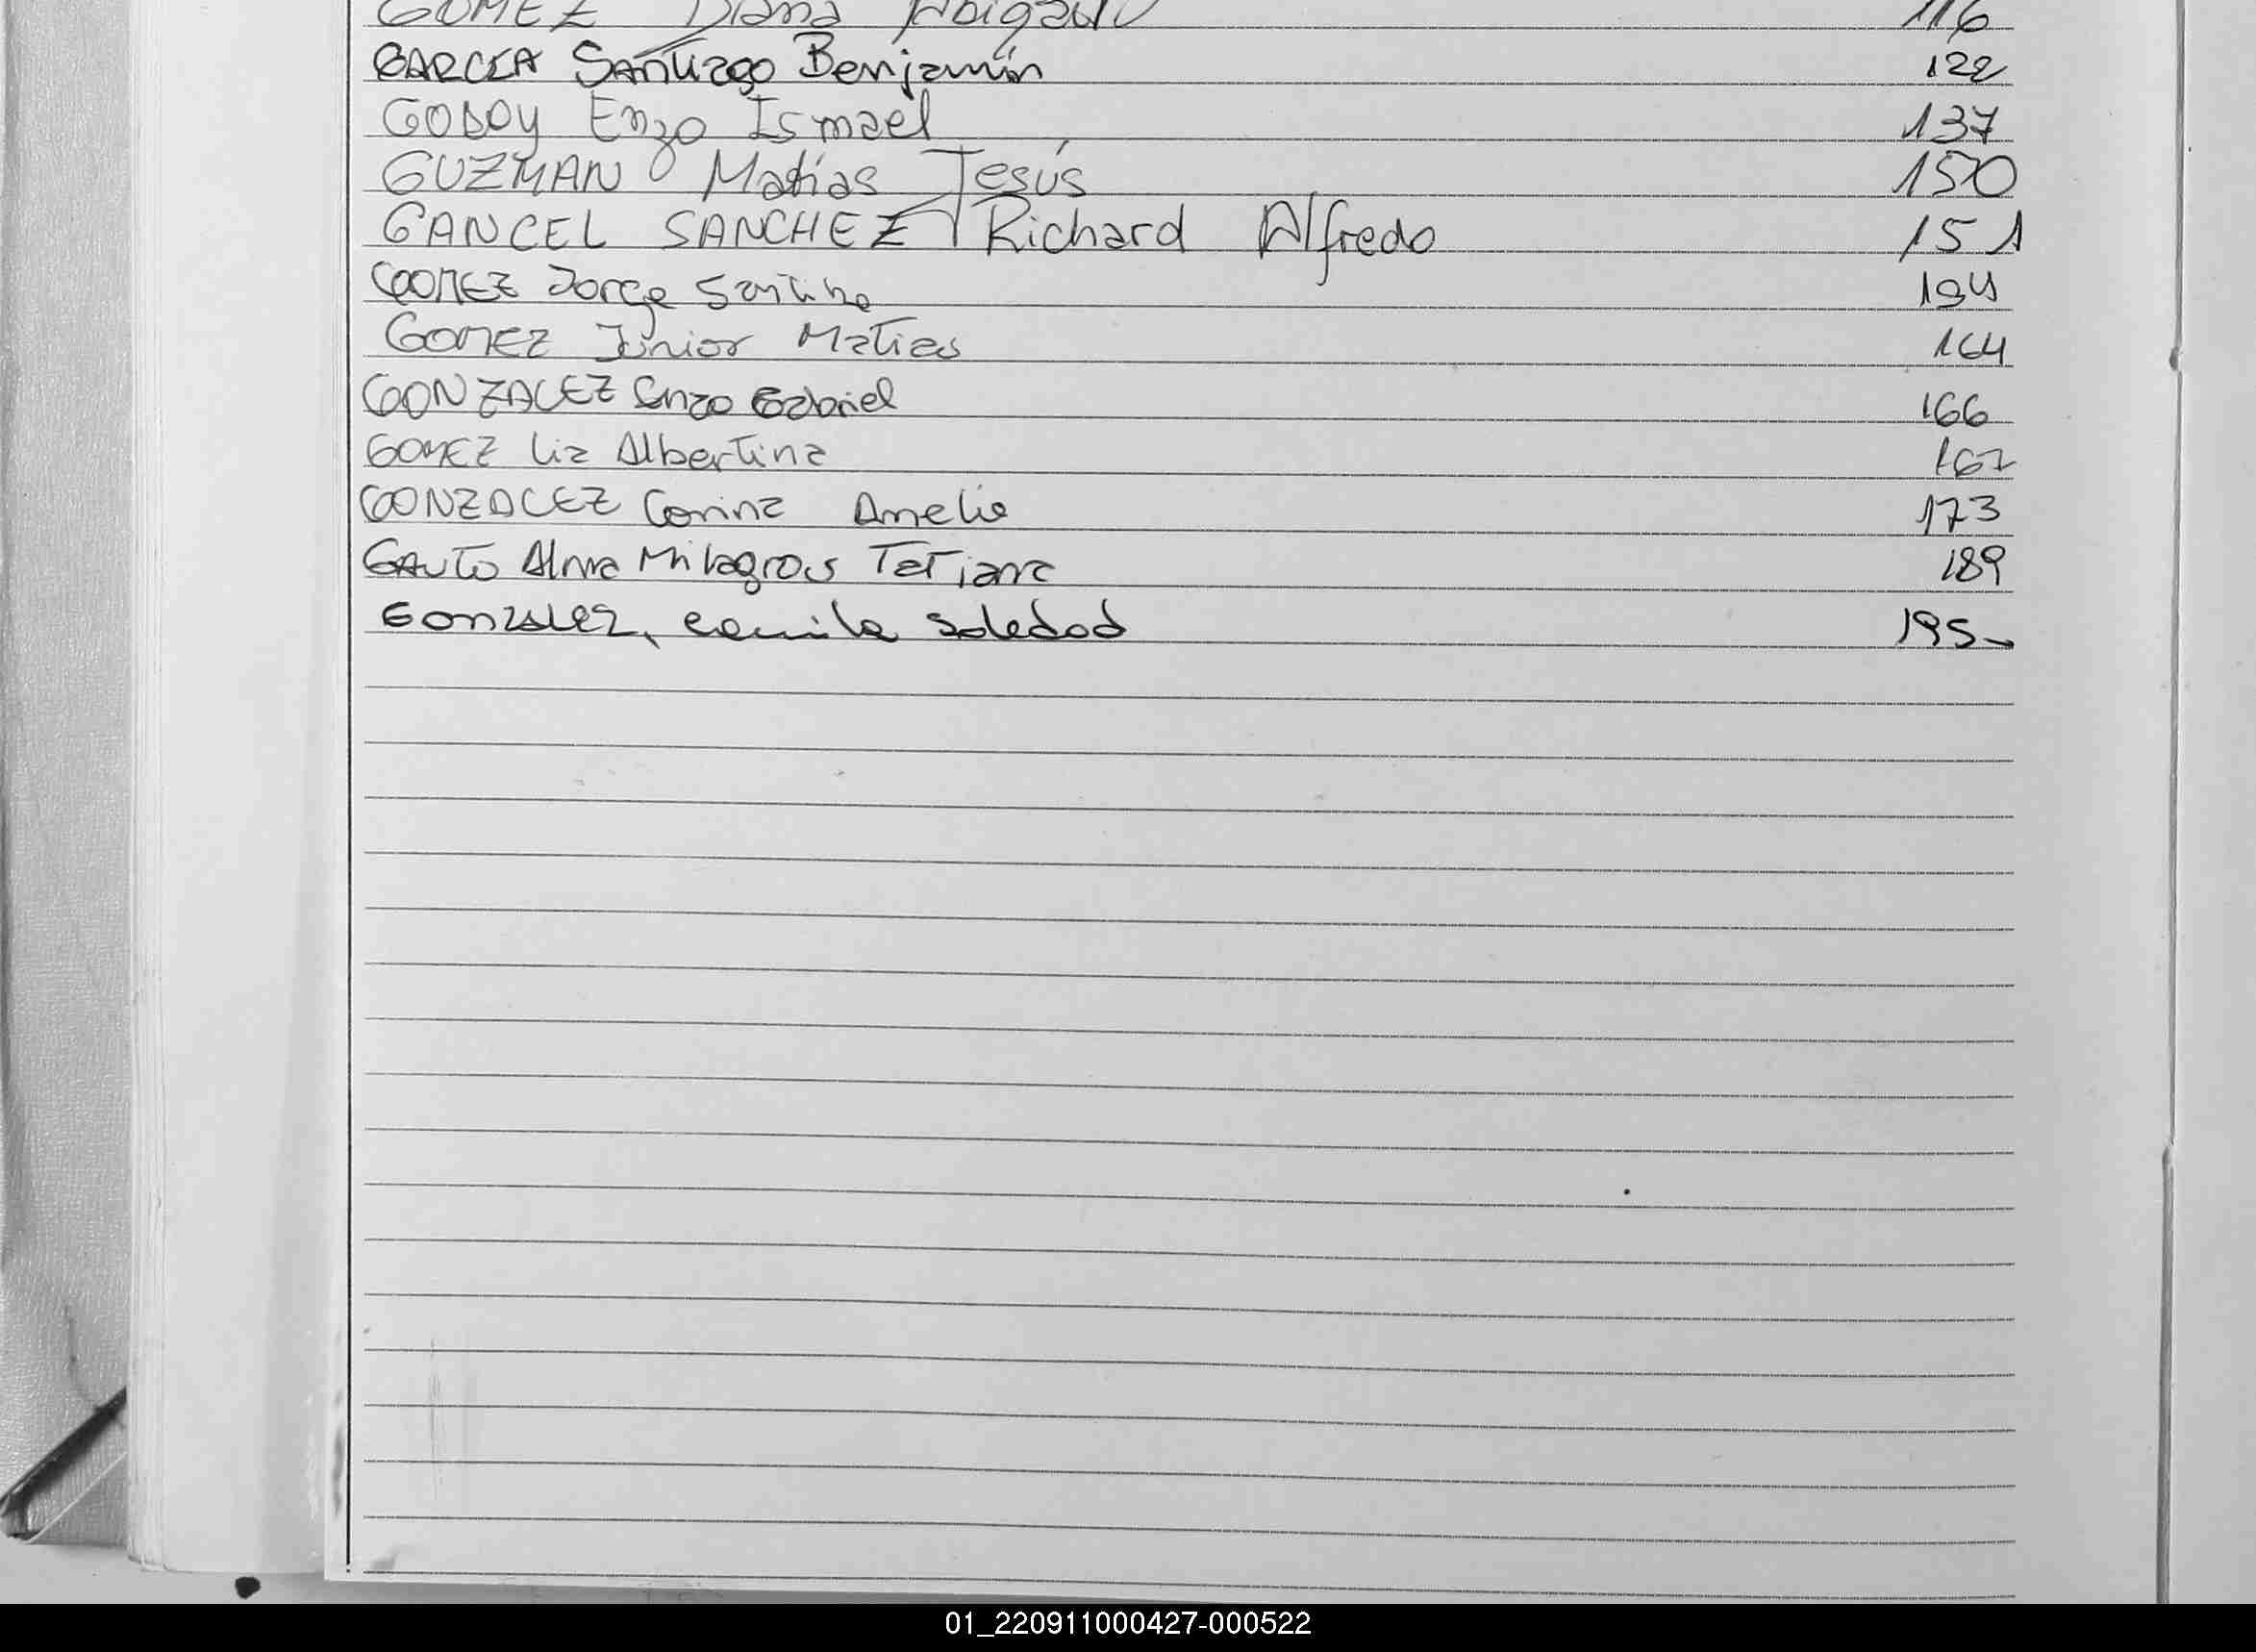 GOMEZ Diana Abigail 116
GARCIA Santiago Benjamín 122
GODOY Enzo Ismael 137
GUZMAN Matías Jesús 150
GANCEL SANCHEZ Richard Alfredo 151
GOMEZ Jorge
GOMEZ Junior Matias 164
GONZALEZ Enzo Gabriel 166
GOMEZ Liz Albertina 167
GONZALEZ Corina Amelie 173
GAUTO Alma Milagros Tatiana 189
Gonzalez, Camila Soledad 195
01_220911000427-000522